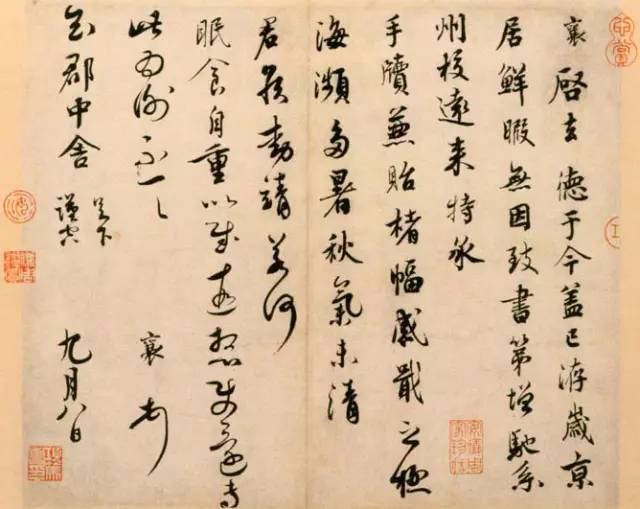 襄啓去德于今蓋已洊歲京
居鮮暇無因致書第增馳系
州校遠來特承
手牘兼貽楮幅感戢之極
海瀕多暑秋氣未清
君侯動靜若何
眠食自重以慰遠還專
此為謝不一一
襄頓首
知郡中舍足下
謹空
九月八日